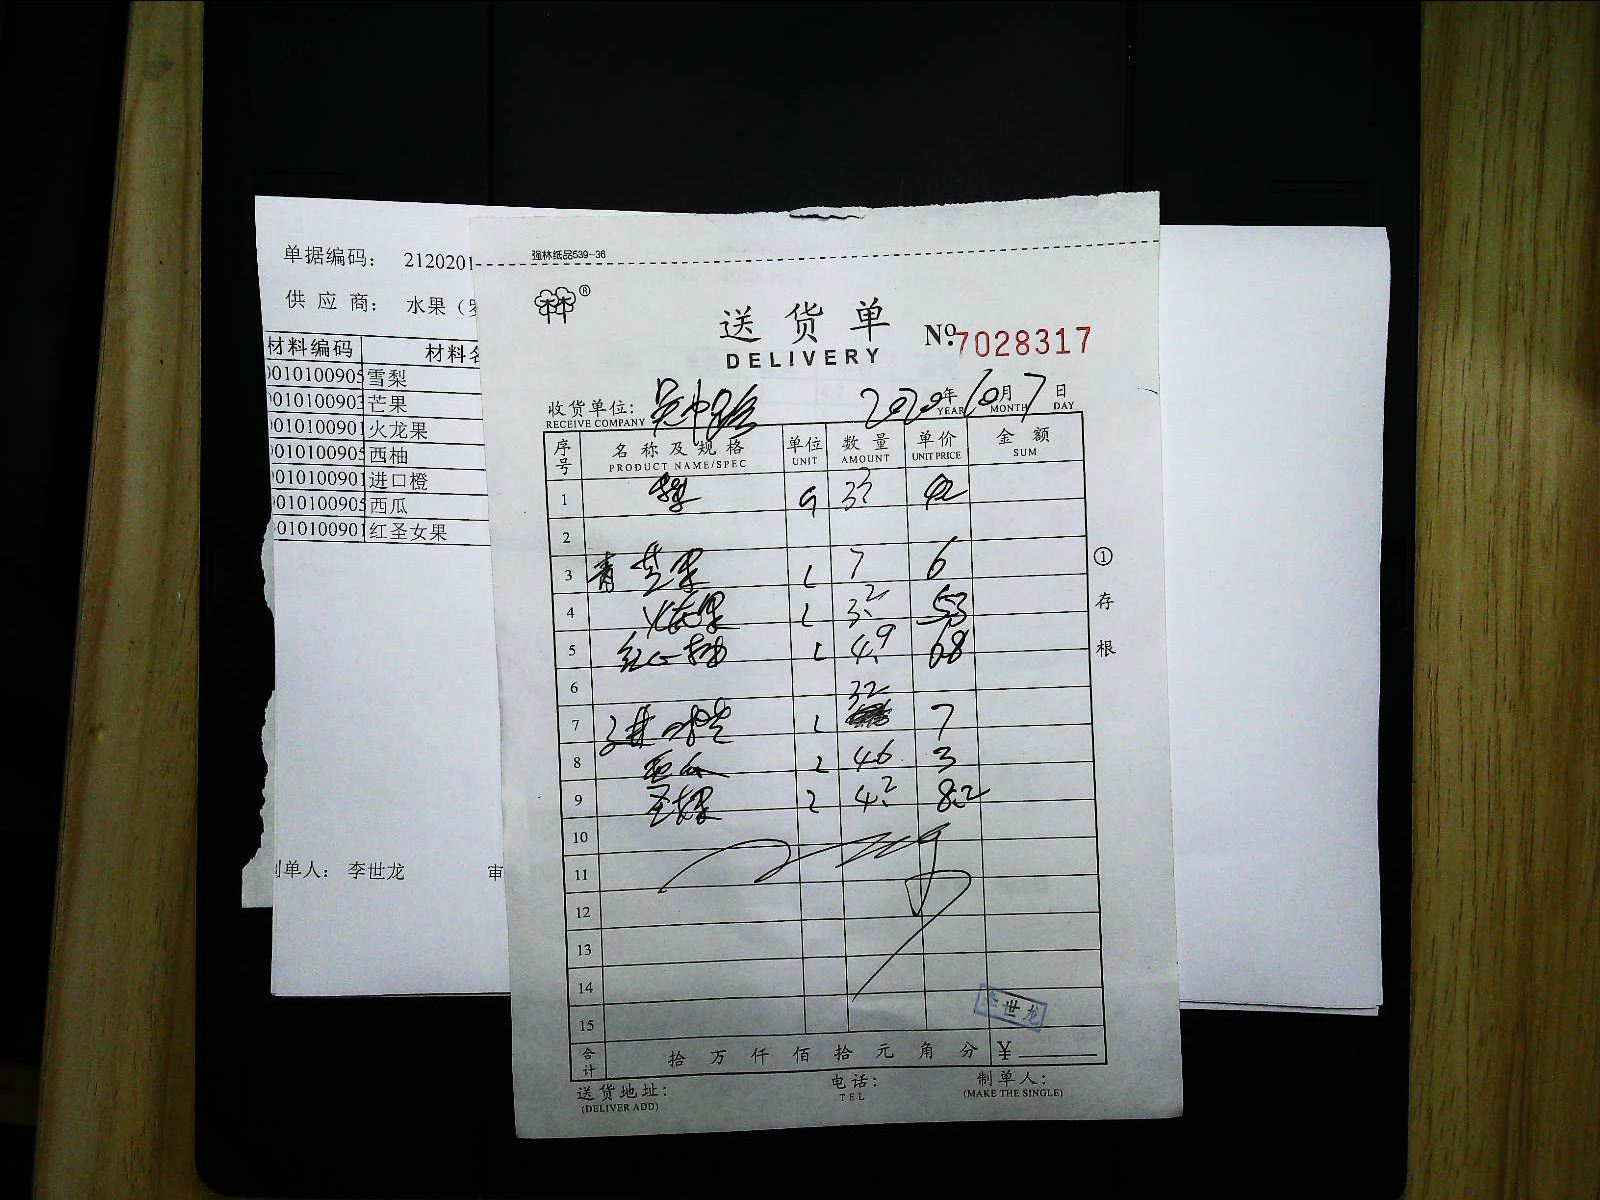 单据编码： 2120201
供 应 商： 水果（
材料编码 材料名
0010100905 雪梨
0010100903 芒果
0010100901 火龙果
0010100905 西柚
0010100901 进口橙
0010100905 西瓜
0010100901 红圣女果
制单人： 李世龙 审
强林纸品539-36
林 ®
送货单
DELIVERY
No. 7028317
收货单位: 吴中路 2020年10月7日
RECEIVE COMPANY YEAR MONTH DAY
序号 名称及规格 单位 数量 单价 金额
PRODUCT NAME/SPEC UNIT AMOUNT UNIT PRICE SUM
1
2
3 青芒果 7 6
4 火龙果 3.2 53
5 红心柚 4.9 68
6
7 进口橙 32 7
8 西瓜 46 3
9 圣女果 4.2 8.2
10
11
12
13
14
15
合计 拾 万 仟 佰 拾 元 角 分 ¥
① 存根
世龙
送货地址: 电话: 制单人:
(DELIVER ADD) TEL (MAKE THE SINGLE)